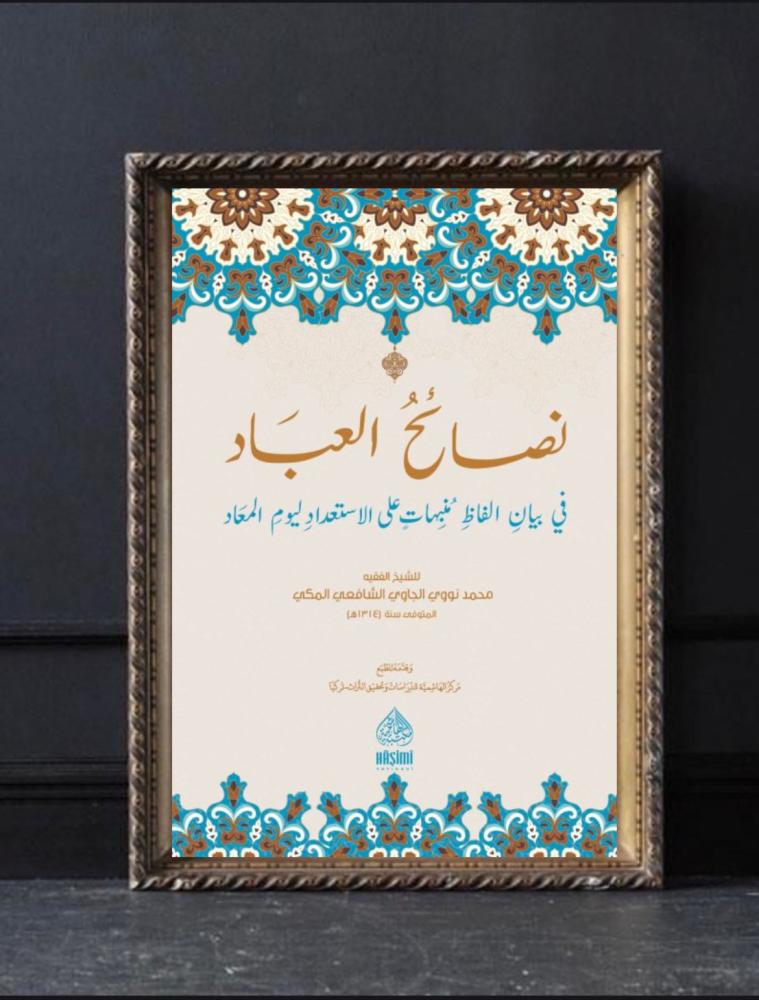 نصائحُ العبَاد
في بيانِ الفاظِ مُنبِهاتٍ على الاستعدادِ ليومِ المعَاد
للشيخ الفقيه
محمد نووي الجاوي الشافعي المكي
المتوفى سنة (١٣١٤هـ)
وقدّمه للطبع
مركز الهاشمية للدراسات وتحقيق التراث-تركيا
HÂŞİMİ